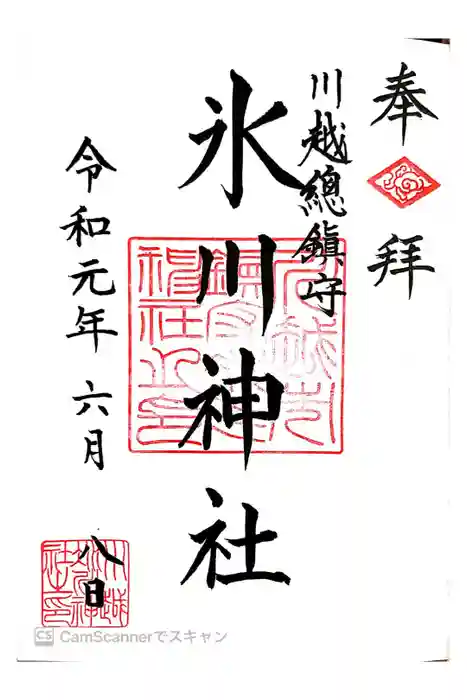 奉拝
川越總鎮守
氷川神社
令和元年六月八日
CS CamScannerでスキャン